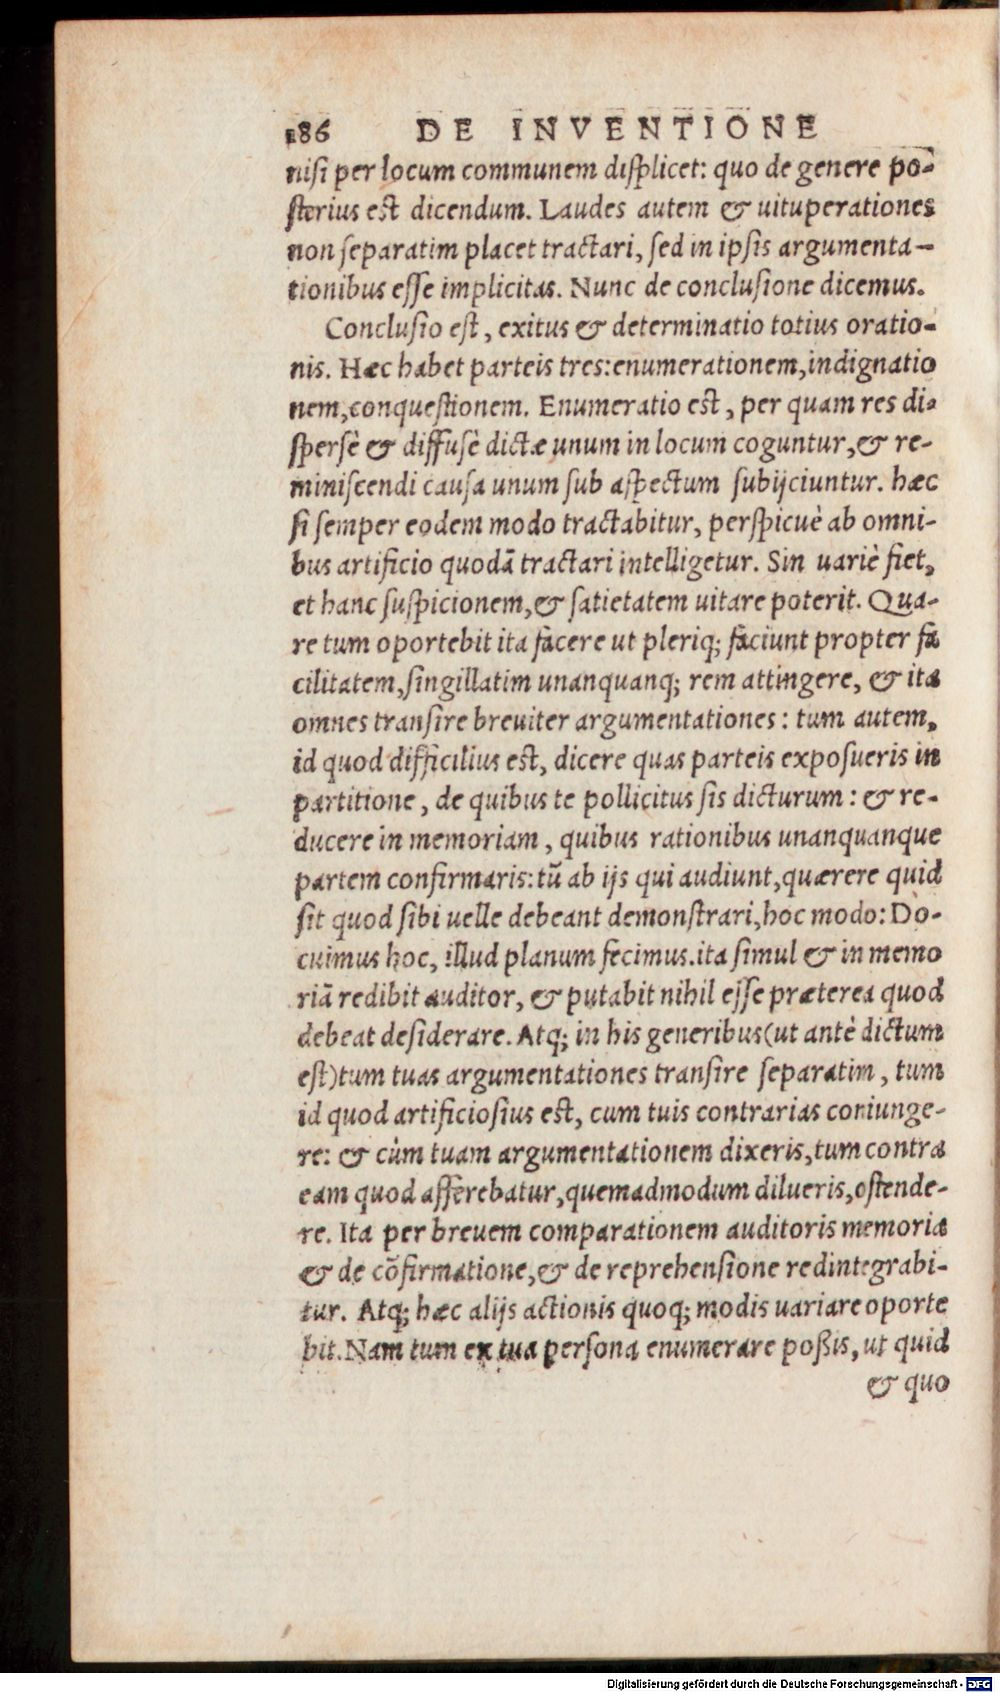 186 DE INVENTIONE
nisi per locum communem displicet: quo de genere po-
sterius est dicendum. Laudes autem & uituperationes
non separatim placet tractari, sed in ipsis argumenta-
tionibus esse implicitas. Nunc de conclusione dicemus.
Conclusio est, exitus & determinatio totius oratio-
nis. Hæc habet parteis tres: enumerationem, indignatio
nem, conquestionem. Enumeratio est, per quam res di-
spersè & diffusè dictæ unum in locum coguntur, & re-
miniscendi causa unum sub aspectum subijciuntur. hæc
si semper eodem modo tractabitur, perspicuè ab omni-
bus artificio quodã tractari intelligetur. Sin uariè fiet,
et hanc suspicionem, & satietatem uitare poterit. Qua-
re tum oportebit ita facere ut pleriq; faciunt propter fa
cilitatem, singillatim unanquanq; rem attingere, & ita
omnes transire breuiter argumentationes: tum autem,
id quod difficilius est, dicere quas parteis exposueris in
partitione, de quibus te pollicitus sis dicturum: & re-
ducere in memoriam, quibus rationibus unanquanque
partem confirmaris: tũ ab ijs qui audiunt, quærere quid
sit quod sibi uelle debeant demonstrari, hoc modo: Do-
cuimus hoc, illud planum fecimus. ita simul & in memo
riã redibit auditor, & putabit nihil esse præterea quod
debeat desiderare. Atq; in his generibus (ut antè dictum
est) tum tuas argumentationes transire separatim, tum
id quod artificiosius est, cum tuis contrarias coniunge-
re: & cùm tuam argumentationem dixeris, tum contra
eam quod afferebatur, quemadmodum dilueris, ostende-
re. Ita per breuem comparationem auditoris memoria
& de cõfirmatione, & de reprehensione redintegrabi-
tur. Atq; hæc alijs actionis quoq; modis uariare oporte
bit. Nam tum ex tua persona enumerare poßis, ut quid
& quo
Digitalisierung gefördert durch die Deutsche Forschungsgemeinschaft - DFG